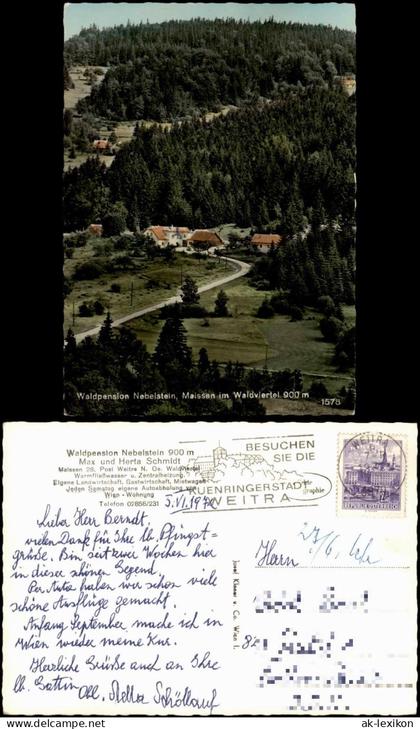 Waldpension Nebelstein, Maissen im Waldviertel 900 m
1578
Waldpension Nebelstein 900 m
Max und Herta Schmidt
Maissen 28, Post Weitra N. Oe. Waldviertel
Warmfließwasser u. Zentralheizung.
Eigene Landwirtschaft, Gastwirtschaft, Mietwagen
Jeden Samstag eigene Autoabholung von
Wien - Wohnung
Telefon 02856/231
BESUCHEN
SIE DIE
KUENRINGERSTADT
WEITRA
WEITRA
REPUBLIK ÖSTERREICH
5.VI.197
Lieber Herr Berndt,
vielen Dank für Ihre lb. Pfingst-
grüße. Bin seit zwei Wochen hier
in dieser schönen Gegend.
Per Auto haben wir schon viele
schöne Ausflüge gemacht.
Anfang September mache ich in
Wien wieder meine Kur.
Herzliche Grüße auch an Ihre
lb. Gattin
Herrn
27/6.
Wien
ansichtskarten-lexikon.de
www.ak-lexikon.de